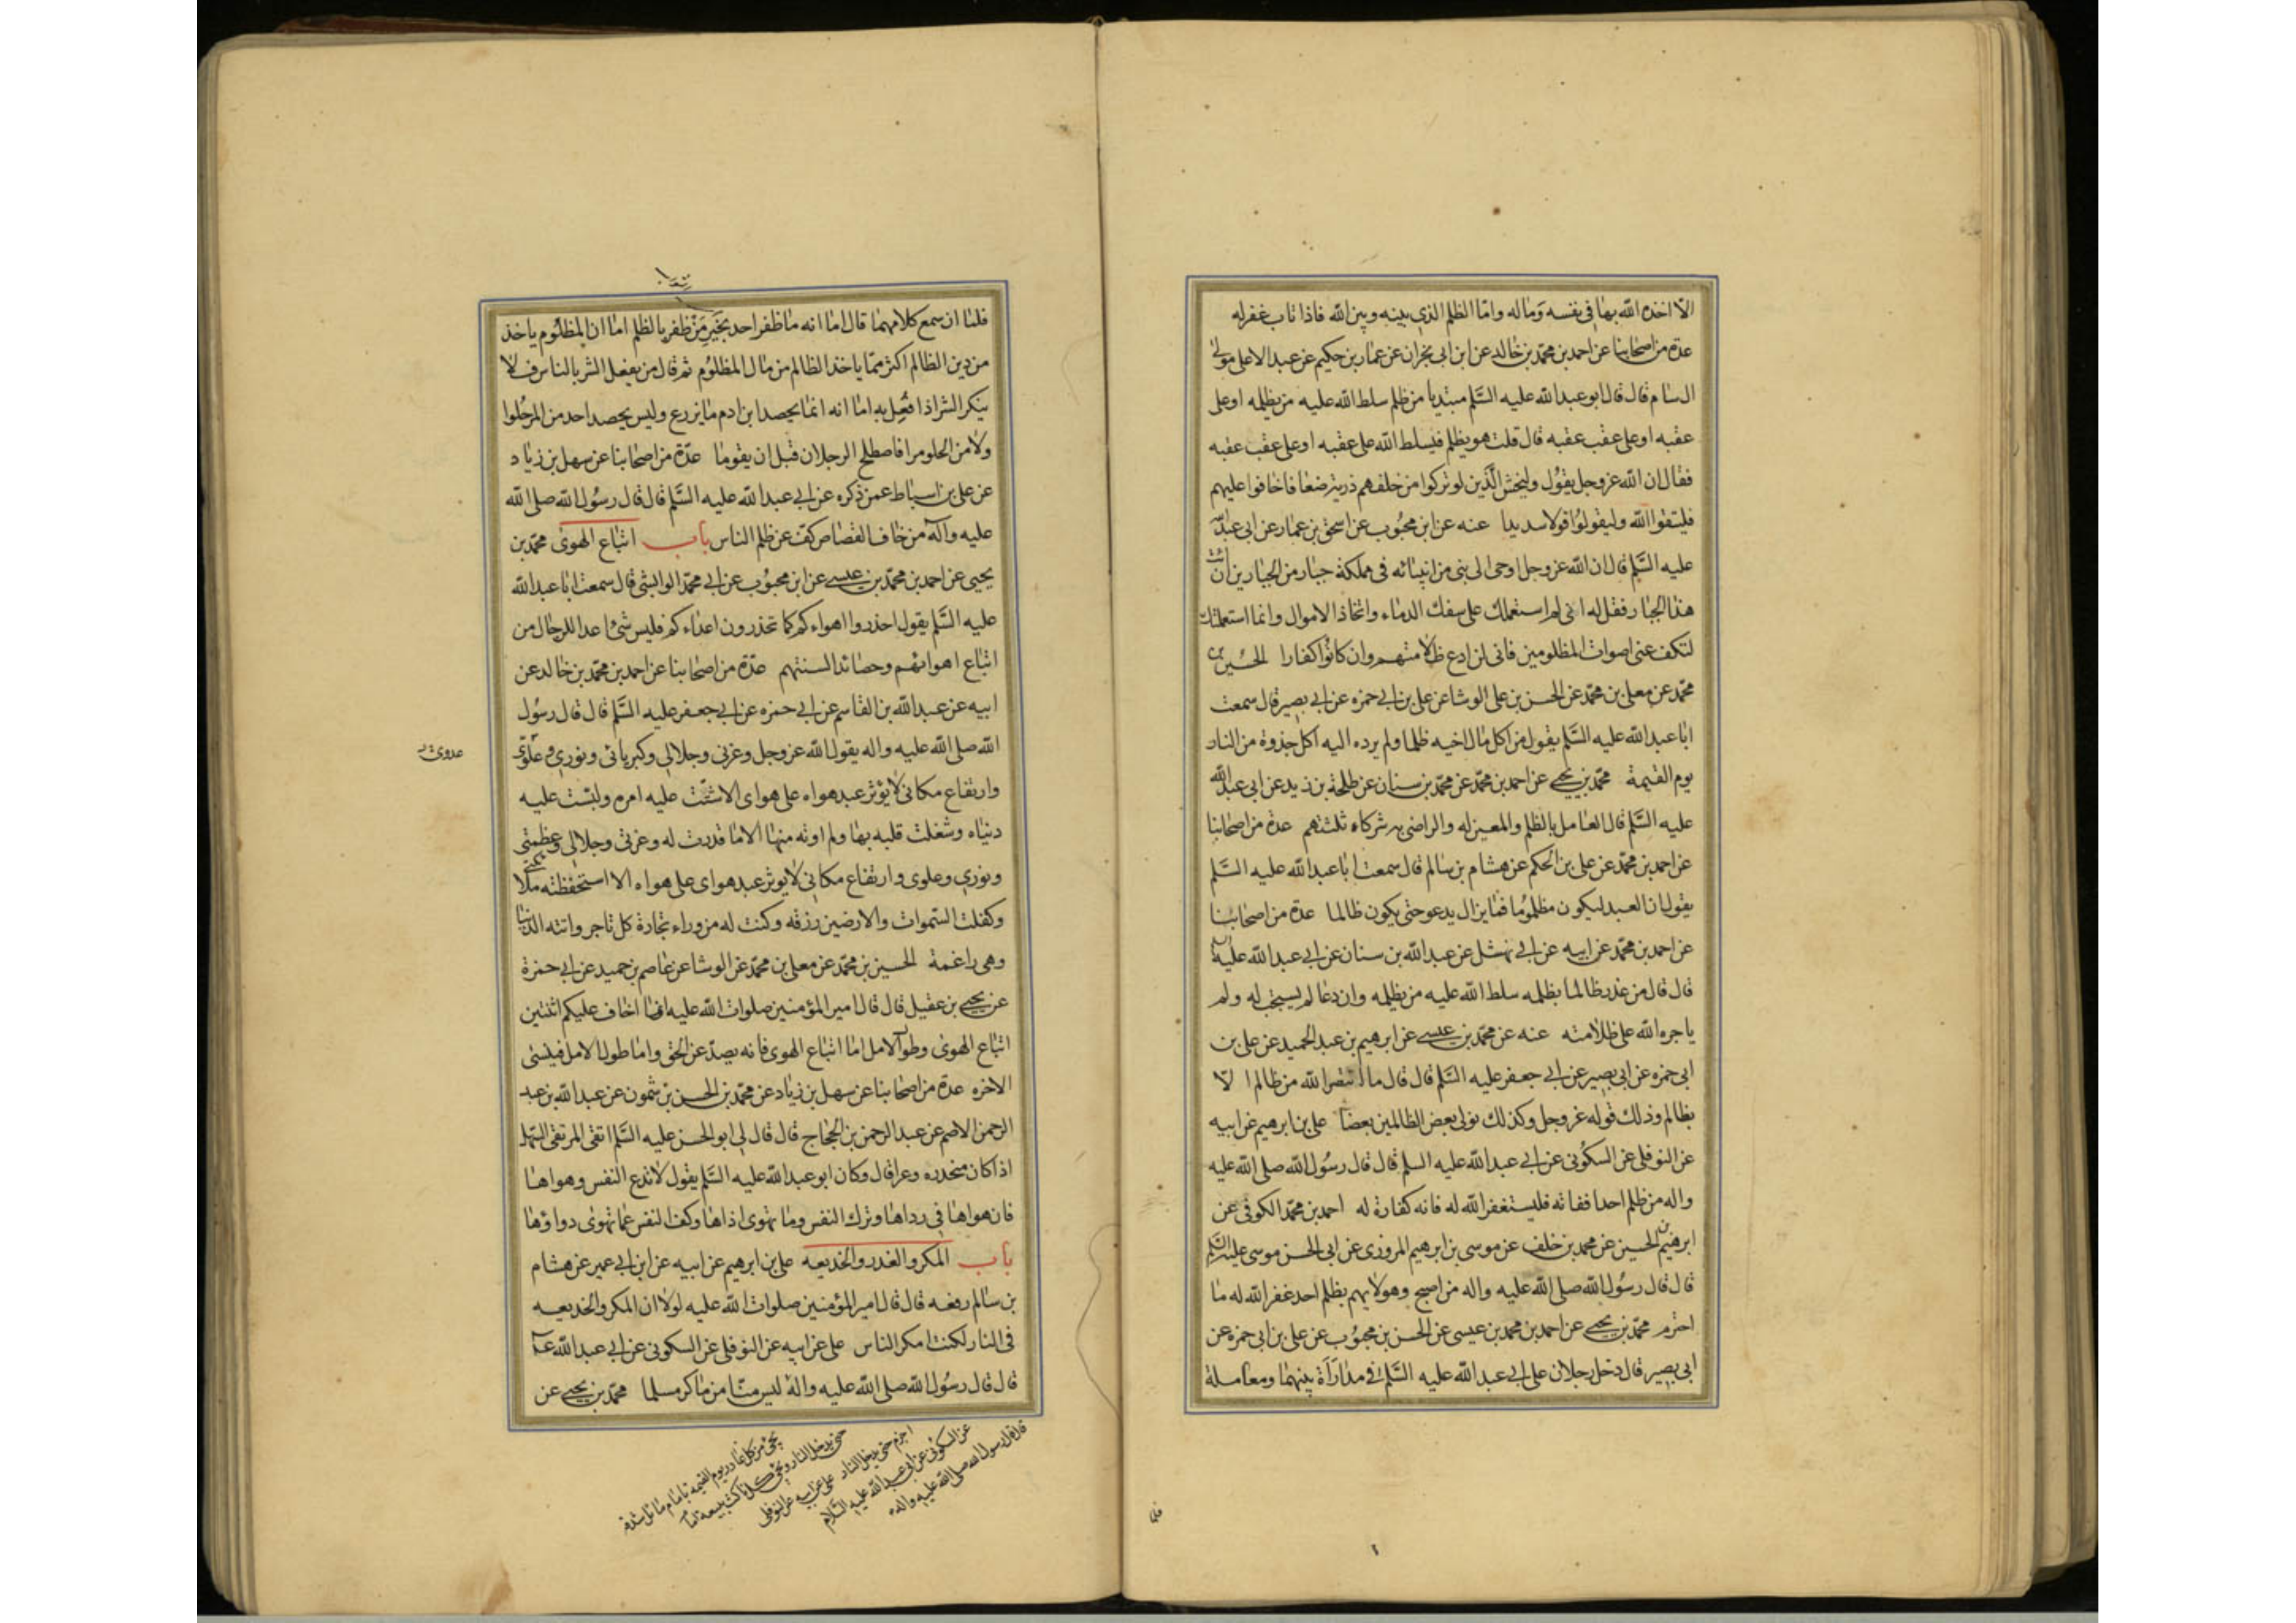 الّا اخذه الله بها فى نفسه وماله واما الظلم الذى بينه وبين الله فاذا تاب غفر له
عدة من اصحابنا عن احمد بن محمد بن خالد عن ابن ابى نجران عن عمار بن حكيم عن عبد الاعلى مولى
ال سام قال قال ابو عبد الله عليه السلم مبتديا من ظلم سلط الله عليه من يظلمه او على
عقبه او على عقب عقبه قال قلت هو يظلم فيسلط الله على عقبه او على عقب عقبه
فقال ان الله عز وجل يقول وليخش الذين لو تركوا من خلفهم ذرية ضعافا خافوا عليهم
فليتقوا الله وليقولوا قولا سديدا عنه عن ابن محبوب عن اسحق بن عمار عن ابى عبد الله
عليه السلم قال ان الله عز وجل اوحى الى نبى من انبيائه فى مملكة جبار من الجبارين ان ائت
هذا الجبار فقل له انى لم استعملك على سفك الدماء واتخاذ الاموال وانما استعملتك
لتكف عنى اصوات المظلومين فانى لن ادع ظلامتهم وان كانوا كفارا الحسين بن
محمد عن معلى بن محمد عن الحسن بن على الوشا عن على بن ابى حمزه عن ابى بصير قال سمعت
ابا عبد الله عليه السلم يقول من اكل مال اخيه ظلما ولم يرده اليه اكل جذوة من النار
يوم القيمة محمد بن يحيى عن احمد بن محمد عن محمد بن سنان عن طلحة بن زيد عن ابى عبد الله
عليه السلم قال العامل بالظلم والمعين له والراضى به شركاء ثلثتهم عدة من اصحابنا
عن احمد بن محمد عن على بن الحكم عن هشام بن سالم قال سمعت ابا عبد الله عليه السلم
يقول ان العبد ليكون مظلوما فما يزال يدعو حتى يكون ظالما عدة من اصحابنا
عن احمد بن محمد عن ابيه عن ابى نهشل عن عبد الله بن سنان عن ابى عبد الله عليه السلم
قال قال من عذر ظالما بظلمه سلط الله عليه من يظلمه وان دعا لم يستجب له ولم
ياجره الله على ظلامته عنه عن محمد بن عيسى عن ابرهيم بن عبد الحميد عن على بن
ابى حمزه عن ابى بصير عن ابى جعفر عليه السلم قال قال ما انتصر الله من ظالم الا
بظالم وذلك قوله عز وجل وكذلك نولى بعض الظالمين بعضا على بن ابرهيم عن ابيه
عن النوفلى عن السكونى عن ابى عبد الله عليه السلم قال قال رسول الله صلى الله عليه
واله من ظلم احدا ففاته فليستغفر الله له فانه كفارة له احمد بن محمد الكوفى عن
ابرهيم بن الحسين عن محمد بن خلف عن موسى بن ابرهيم المروزى عن ابى الحسن موسى عليه السلم
قال قال رسول الله صلى الله عليه واله من اصبح وهو لا يهم بظلم احد غفر الله له ما
اجترم محمد بن يحيى عن احمد بن محمد بن عيسى عن الحسن بن محبوب عن على بن ابى حمزه عن
ابى بصير قال دخل رجلان على ابى عبد الله عليه السلم فى مداراة بينهما ومعاملة
فلما
فلما ان سمع كلامهما قال اما انه ما ظفر احد بخير من ظفر بالظلم اما ان المظلوم ياخذ
من دين الظالم اكثر مما ياخذ الظالم من مال المظلوم ثم قال من يفعل الشر بالناس فلا
ينكر الشر اذا فعل به اما انه انما يحصد ابن ادم ما يزرع وليس يحصد احد من المر حلوا
ولا من الحلو مرا فاصطلح الرجلان قبل ان يقوما عدة من اصحابنا عن سهل بن زياد
عن على بن اسباط عمن ذكره عن ابى عبد الله عليه السلم قال قال رسول الله صلى الله
عليه واله من خاف القصاص كف عن ظلم الناس باب اتباع الهوى محمد بن
يحيى عن احمد بن محمد بن عيسى عن ابن محبوب عن ابى محمد الوابشى قال سمعت ابا عبد الله
عليه السلم يقول احذروا اهواءكم كما تحذرون اعداءكم فليس شئ اعدا للرجال من
اتباع اهوائهم وحصائد السنتهم عدة من اصحابنا عن احمد بن محمد بن خالد عن
ابيه عن عبد الله بن القاسم عن ابى حمزه عن ابى جعفر عليه السلم قال قال رسول
الله صلى الله عليه واله يقول الله عز وجل وعزتى وجلالى وكبريائى ونورى وعلوى
وارتفاع مكانى لا يؤثر عبد هواه على هواى الا شتت عليه امره ولبست عليه
دنياه وشغلت قلبه بها ولم اوته منها الا ما قدرت له وعزتى وجلالى وعظمتى
ونورى وعلوى وارتفاع مكانى لا يوثر عبد هواى على هواه الا استحفظته ملائكتى
وكفلت السموات والارضين رزقه وكنت له من وراء تجارة كل تاجر واتته الدنيا
وهى راغمة الحسين بن محمد عن معلى بن محمد عن الوشا عن عاصم بن حميد عن ابى حمزة
عن يحيى بن عقيل قال قال امير المؤمنين صلوات الله عليه انما اخاف عليكم اثنتين
اتباع الهوى وطول الامل اما اتباع الهوى فانه يصد عن الحق واما طول الامل فينسى
الاخره عدة من اصحابنا عن سهل بن زياد عن محمد بن الحسن بن شمون عن عبد الله بن عبد
الرحمن الاصم عن عبد الرحمن بن الحجاج قال قال لى ابو الحسن عليه السلم اتقى المرتقى السهل
اذا كان منحدره وعرا قال وكان ابو عبد الله عليه السلم يقول لا تدع النفس وهواها
فان هواها فى رداها وترك النفس وما تهوى اذاها وكف النفس عما تهوى دواؤها
باب المكر والغدر والخديعه على بن ابرهيم عن ابيه عن ابن ابى عمير عن هشام
بن سالم رفعه قال قال امير المؤمنين صلوات الله عليه لولا ان المكر والخديعه
فى النار لكنت امكر الناس على عن ابيه عن النوفلى عن السكونى عن ابى عبد الله
قال قال رسول الله صلى الله عليه واله ليس منا من ماكر مسلما محمد بن يحيى عن
قال قال رسول الله صلى الله عليه واله
عن السكونى عن ابى عبد الله عليه السلام
اجذم حتى يدخل النار على عن ابيه عن النوفلى
حتى يدخل النار ويجئ كل ناكث بيعة امام
يجئ كل غادر يوم القيمة بامام مائل شدقه